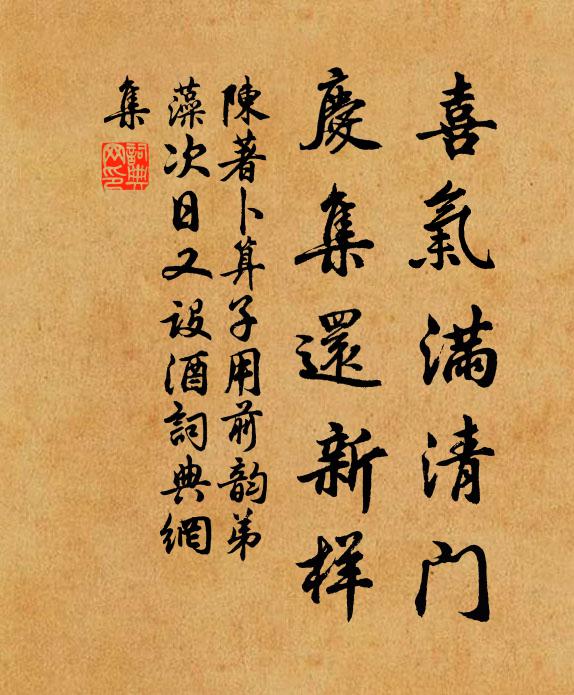 喜氣滿清门
慶集還新样
陳著卜算子用前韵弟
藻次日又设酒詞典網
集
詞典网印